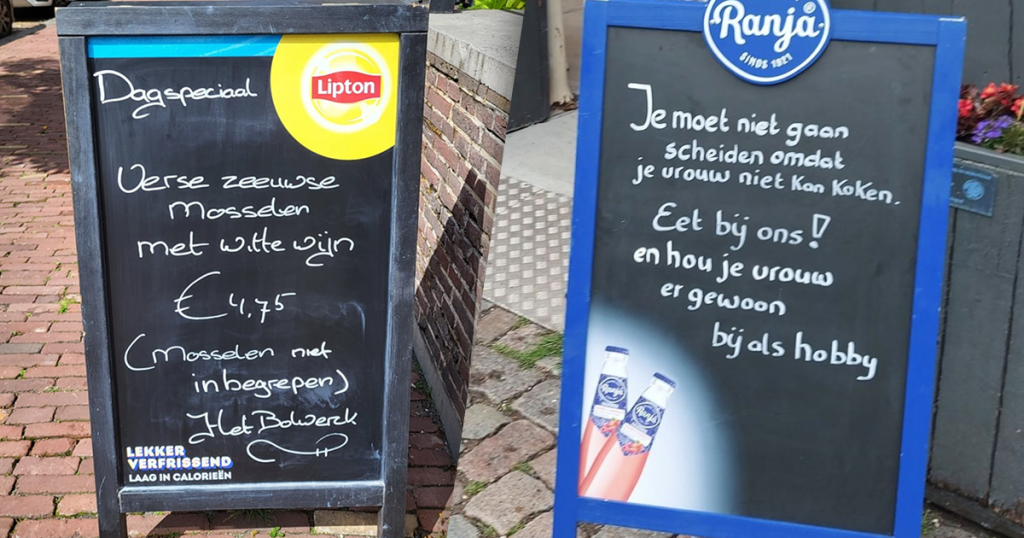 Dagspeciaal
Lipton
Verse zeeuwse
Mosselen
met witte wijn
€ 4,75
(Mosselen niet
inbegrepen)
Het Bolwerck
LEKKER
VERFRISSEND
LAAG IN CALORIEËN
Ranja
SINDS 1921
Je moet niet gaan
scheiden omdat
je vrouw niet kan koken.
Eet bij ons!
en hou je vrouw
er gewoon
bij als hobby
Ranja
Ranja